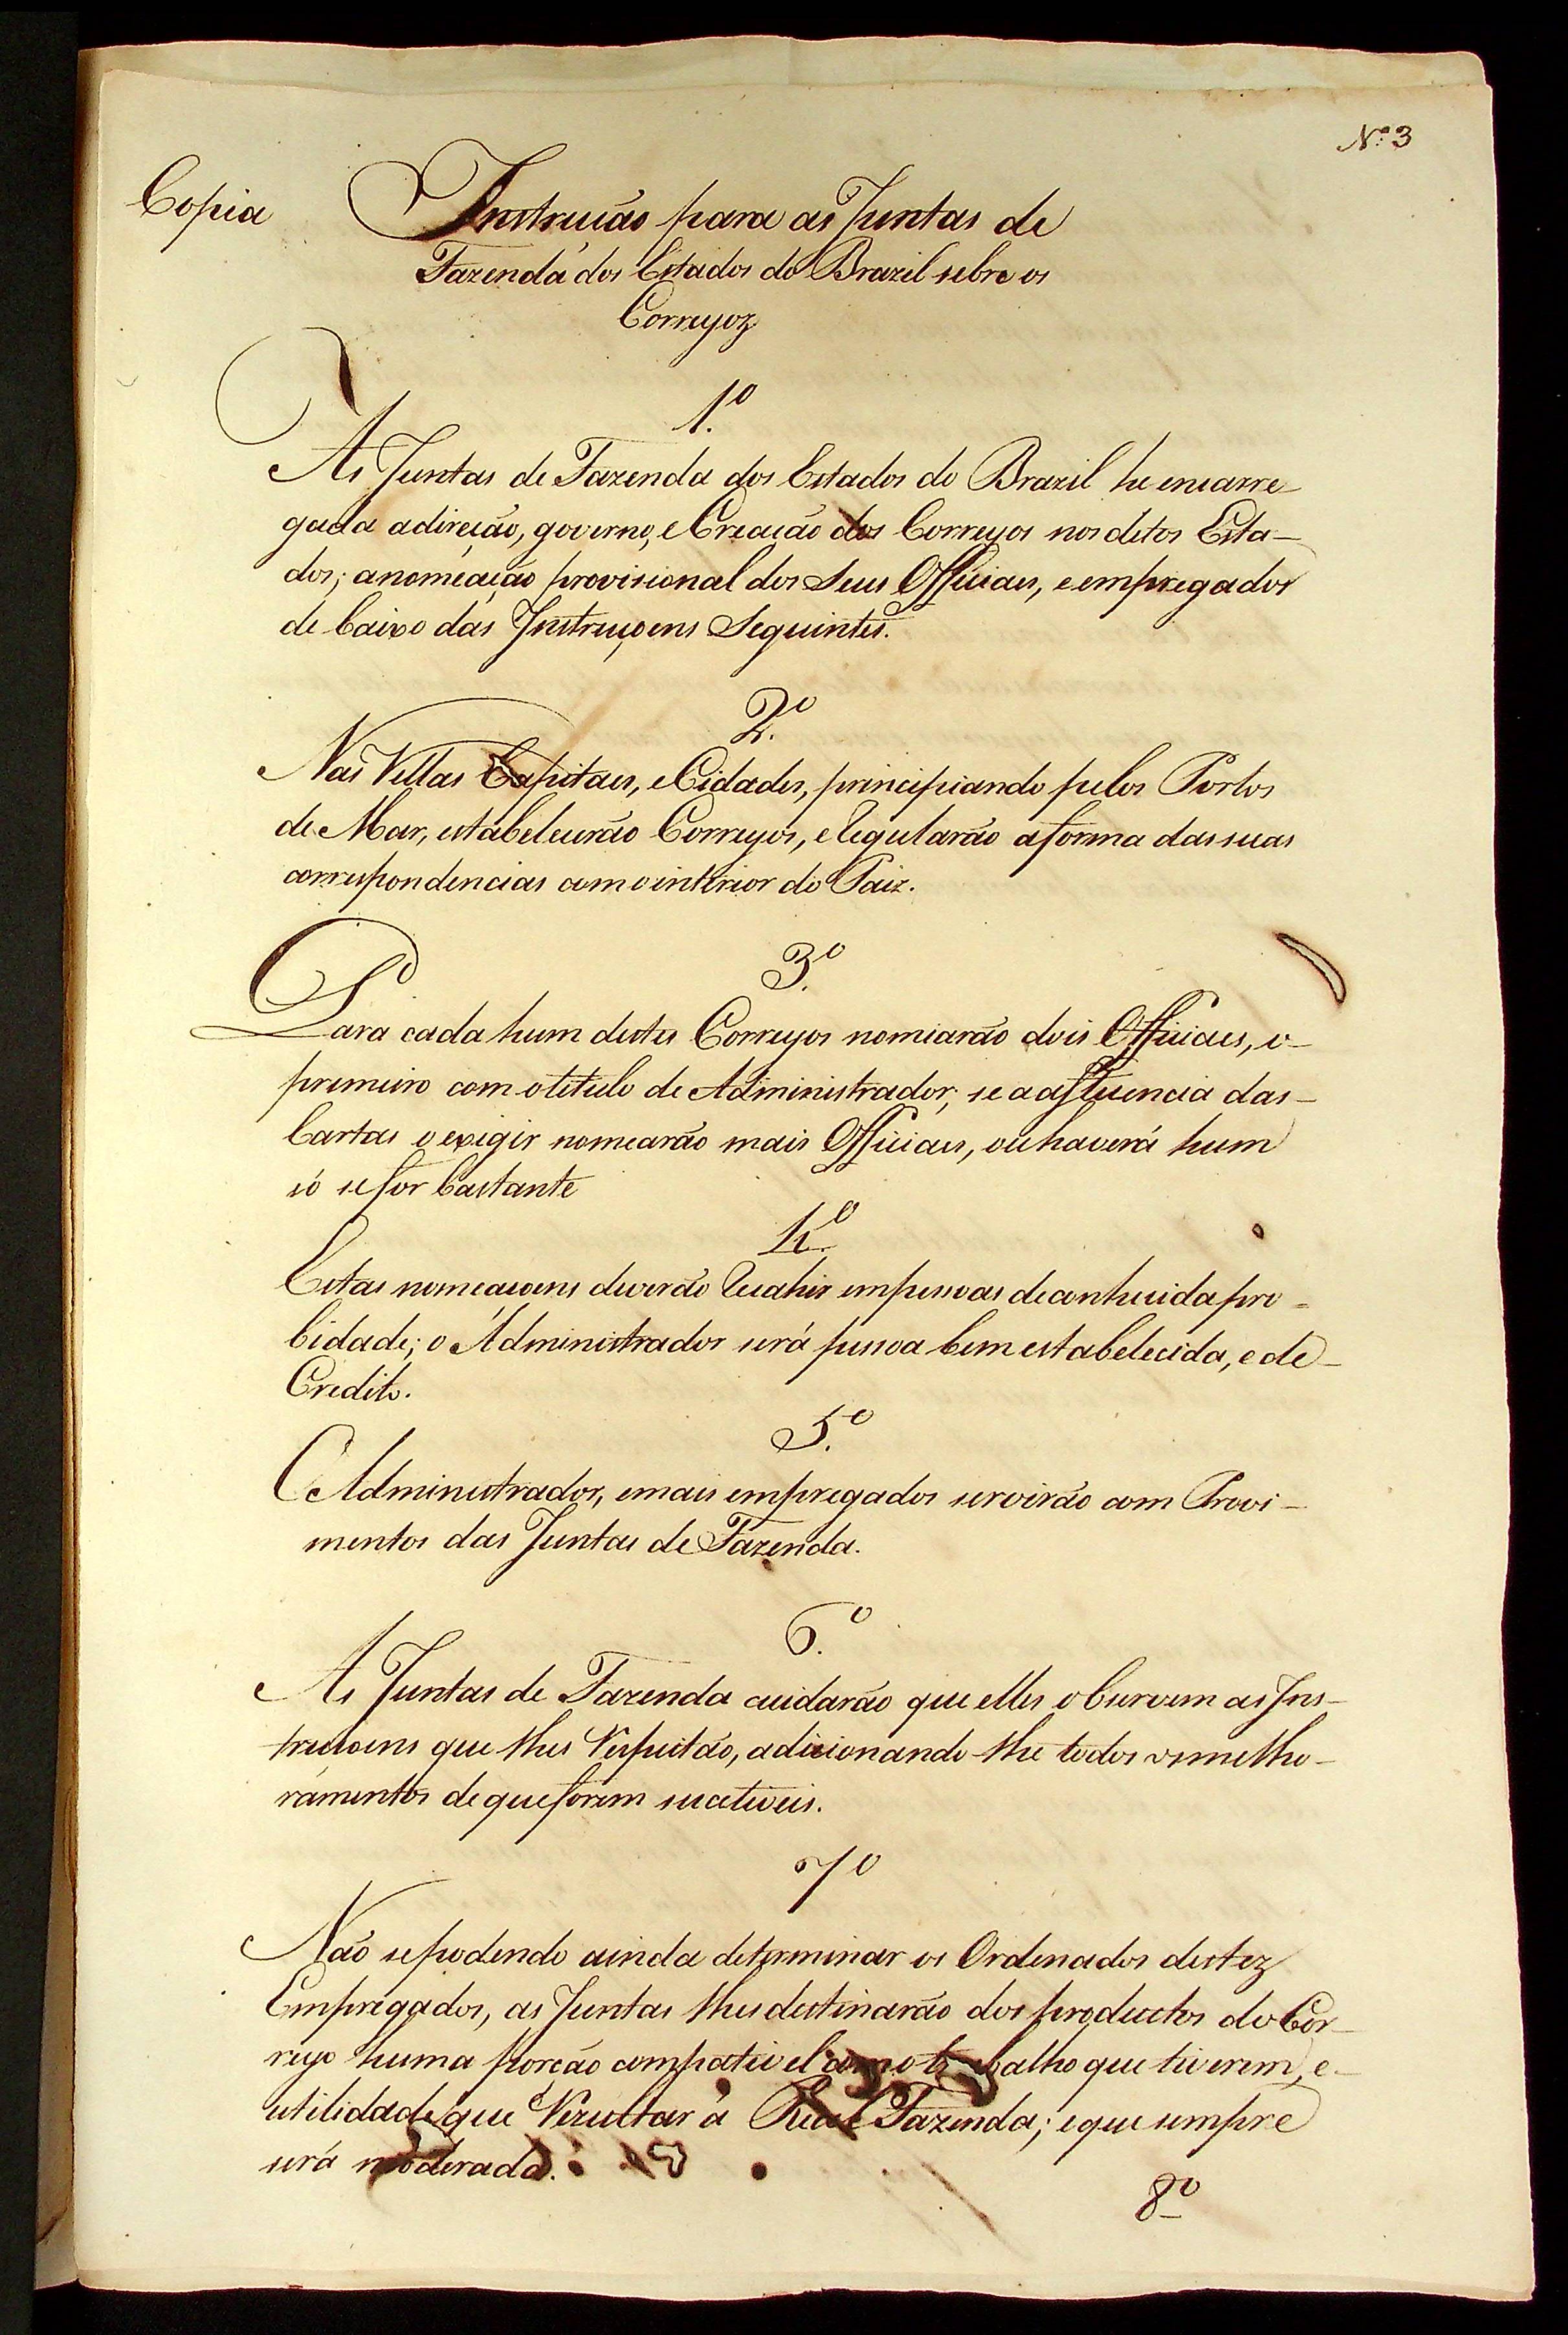 Nº 3
Copia
Instrucão para as Juntas de
Fazenda dos Estados do Brazil sobre os
Correyoz
1.º
As Juntas de Fazenda dos Estados do Brazil he encarre
gada adireção, governo, e Creacão dos Correyos nos ditos Esta-
dos; anomeação provisional dos Seus Officiaes, e empregados
de baixo das Instruçoens Seguintes.
2.º
Nas Villas Capitaes, e Cidades, principiando pelos Portos
de Mar, estabelecerão Correyos, e Regularão aforma das suas
correspondencias com o interior do Paiz.
3.º
Para cada hum destes Correyos nomearão dois Officiaes, o-
premeiro com o titulo de Administrador; se a affluencia das-
Cartas o exigir nomearão mais Officiaes, ou haverá hum
só se for bastante
4.º
Estas nomeacoens deverão Recahir em pessoas de conhecida pro=
bidade; o Administrador será pessoa bem estabelecida, e de-
Credito.
5.º
O Administrador, e mais empregados servirão com Provi-
mentos das Juntas de Fazenda.
6.º
As Juntas de Fazenda cuidarão que elles observem as Ins-
truçoens que lhes Respeitão, adicionando-lhe todos os melho-
ramentos de que forem sucetiveis.
7º
Não se podendo ainda determinar os Ordenados destez
Empregados, as Juntas lhes destinarão dos productos do Cor-
reyo huma porcão compativel com o trabalho que tiverem, e-
utilidade que Rezultar á Real Fazenda; e que sempre
será moderada.
8º